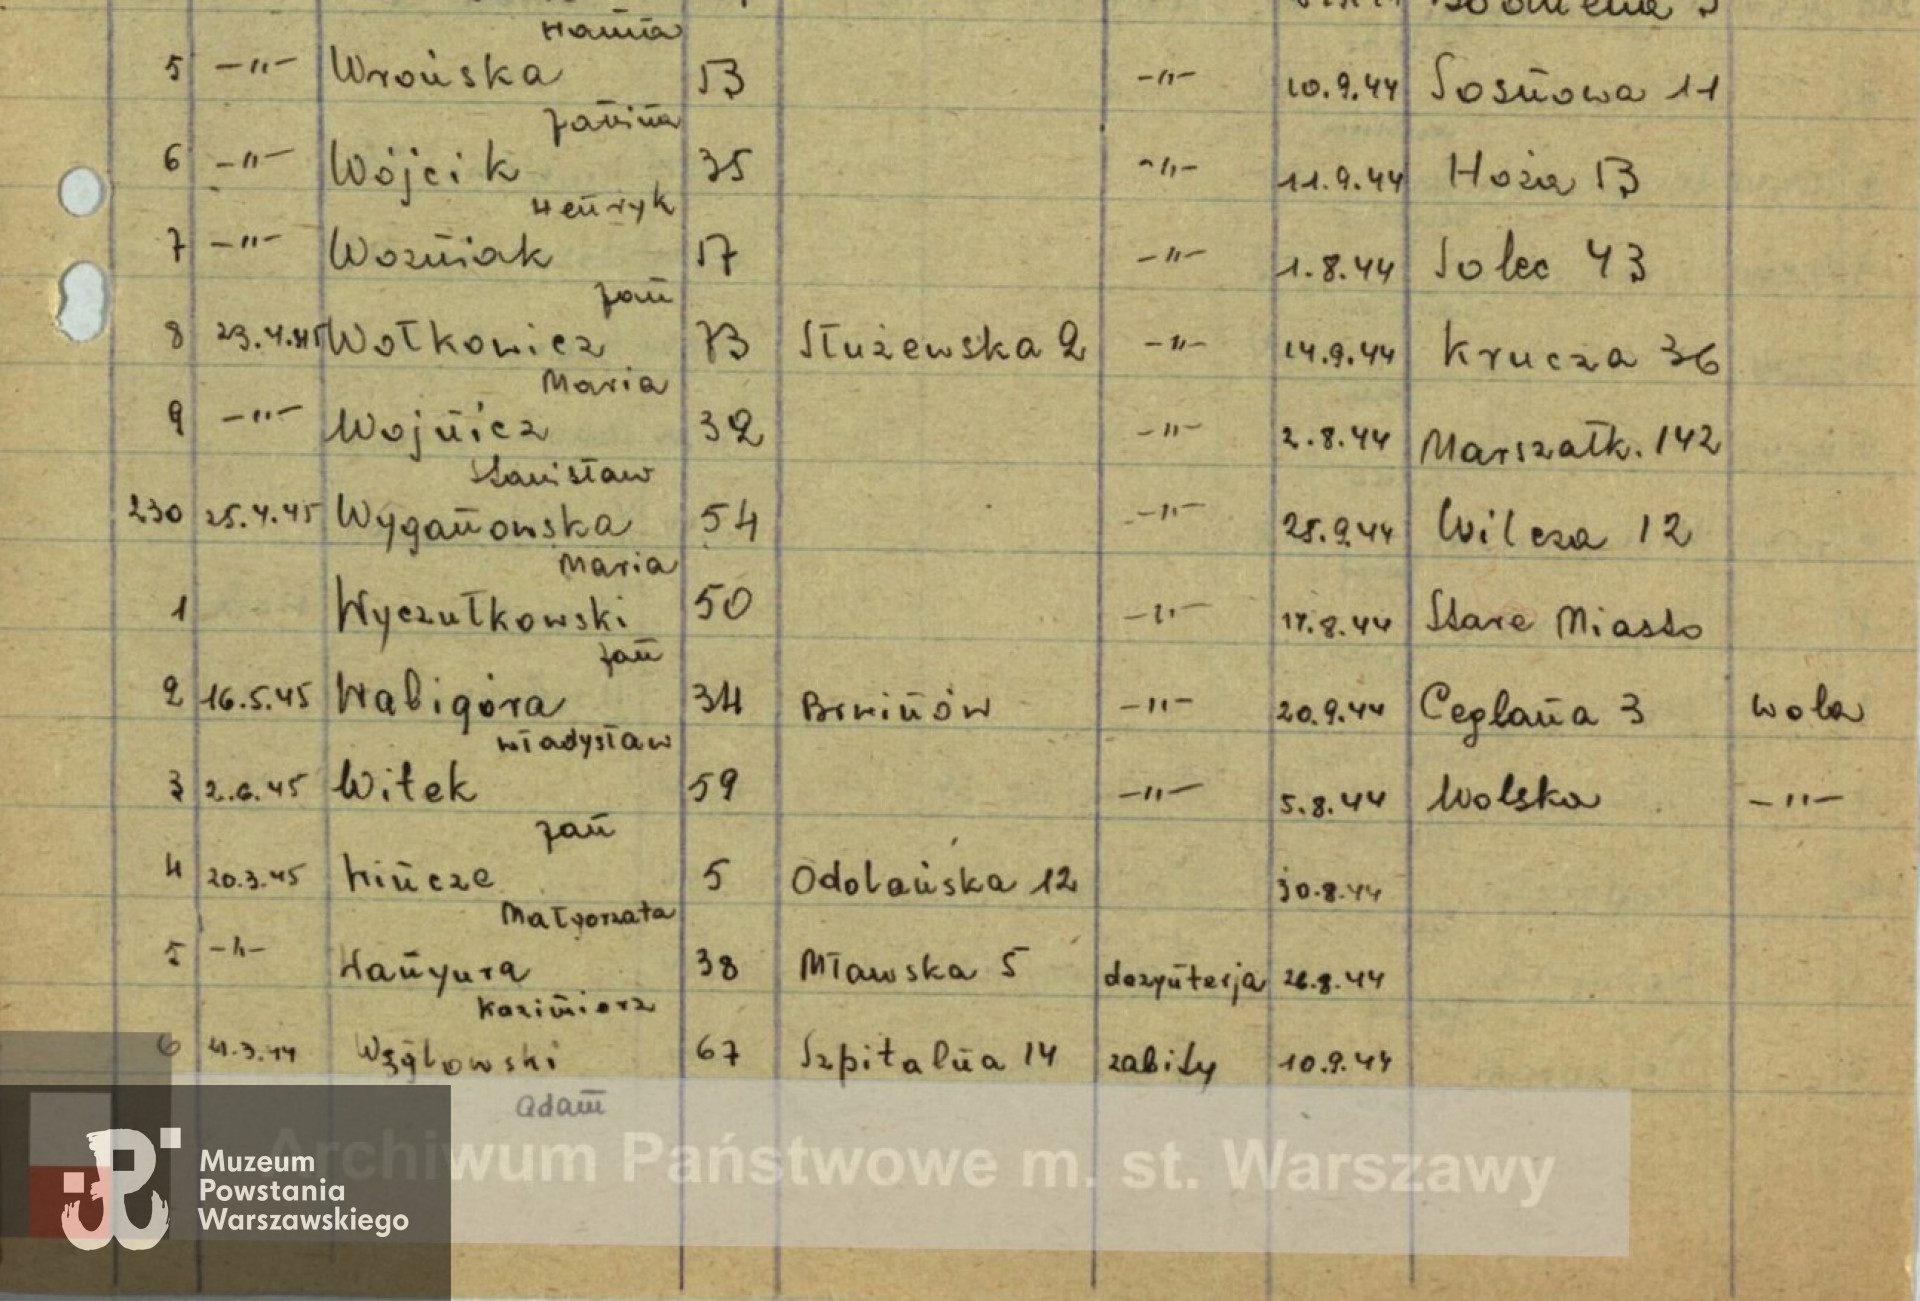 Hanna
5 —"— Wrońska 53 —"— 10.9.44 Sosnowa 11
Janina
6 —"— Wójcik 35 —"— 11.9.44 Hoża 13
Henryk
7 —"— Wozniak 17 —"— 1.8.44 Solec 43
Jan
8 23.4.45 Wołkowicz 73 Służewska 2 —"— 14.9.44 Krucza 36
Maria
9 —"— Wojnicz 32 —"— 2.8.44 Marszałk. 142
Stanisław
230 25.4.45 Wyganowska 54 —"— 25.9.44 Wilcza 12
Maria
1 Wyczułkowski 50 —"— 17.8.44 Stare Miasto
Jan
2 16.5.45 Wabigóra 34 Brwinów —"— 20.9.44 Ceglana 3 Wola
Władysław
3 2.6.45 Witek 59 —"— 5.8.44 Wolska —"—
Jan
4 20.3.45 Wincze 5 Odolańska 12 30.8.44
Małgorzata
5 —"— Wanyura 38 Mławska 5 dezynterja 26.8.44
Kazimierz
6 Szpitalna 14 67 zabity 10.9.44
Adam
Archiwum Państwowe m. st. Warszawy
Muzeum
Powstania
Warszawskiego